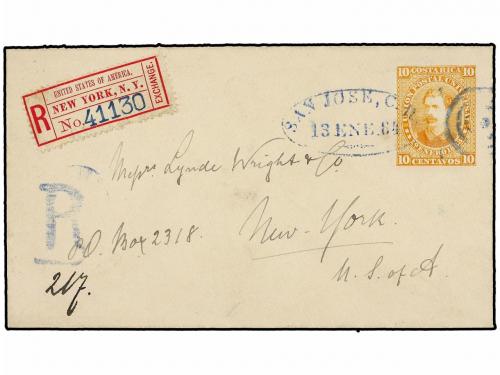 UNITED STATES OF AMERICA.
NEW YORK, N.Y.
EXCHANGE.
R
No. 41130
SAN JOSE, C.R.
13 ENE. 84
10 COSTA RICA 10
UNION POSTAL UNIVERSAL
10 CENTAVOS 10
Messrs Lynde Wright & Co
R
P.O. Box 2318.
New-York.
U. S. of A.
217.